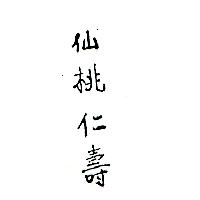 仙桃仁壽